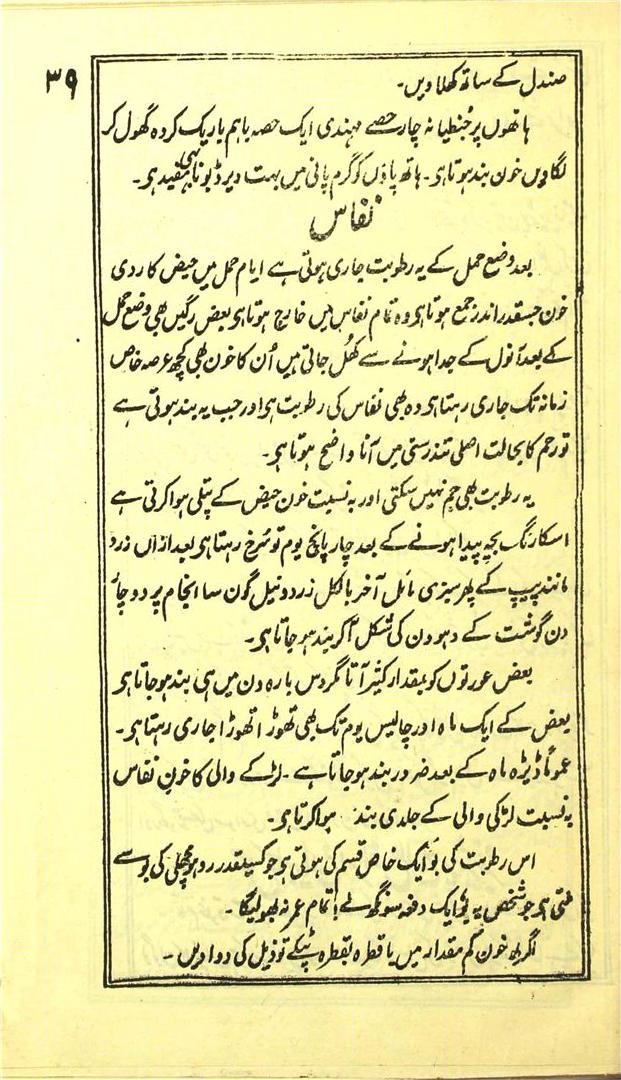 ۳۹
صندل کے ساتھ کھلاویں۔
ہاتھوں پر جنطیانہ چار حصے مہندی ایک حصہ باہم باریک کردہ گھول کر
لگاویں خون بند ہوتا ہی۔ ہاتھ پاؤں کو گرم پانی میں بہت دیر ڈبونا بھی مفید ہی۔
نفاس
بعد وضع حمل کے یہ رطوبت جاری ہوتی ہے ایام حمل میں حیض کا ردی
خون جسقدر اندر جمع ہوتا ہی وہ تمام نفاس میں خارج ہوتا ہی بعض رگیں بھی وضع حمل
کے بعد آنول کے جدا ہونے سے کھل جاتی ہیں اُن کا خون بھی کچھ عرصہ خاص
زمانہ تک جاری رہتا ہی وہ بھی نفاس کی رطوبت ہی اور جب یہ بند ہوتی ہے
تو رحم کا بحالت اصلی تندرستی میں آنا واضح ہوتا ہی۔
یہ رطوبت بھی جم نہیں سکتی اور بہ نسبت خون حیض کے پتلی ہوا کرتی ہے
اسکا رنگ بچہ پیدا ہونے کے بعد چار پانچ یوم تو سُرخ رہتا ہی بعد ازاں زرد
مانند پیپ کے پھر سبزی مائل آخر بالکل زرد و نیل گون سا انجام پر دو چار
دن گوشت کے دہوون کی شکل آکر بند ہو جاتا ہی۔
بعض عورتوں کو بمقدار کثیر آتا مگر دس بارہ دن میں ہی بند ہو جاتا ہی
بعض کے ایک ماہ اور چالیس یوم تک بھی تھوڑا تھوڑا جاری رہتا ہی۔
عموماً ڈیڑہ ماہ کے بعد ضرور بند ہو جاتا ہے۔ لڑکے والی کا خون نفاس
بہ نسبت لڑکی والی کے جلدی بند ہوا کرتا ہی۔
اس رطوبت کی بو ایک خاص قسم کی ہوتی ہی جو کسیقدر مچھلی کی بو سے
ملتی ہی جو شخص یہ بو ایک دفعہ سونگھ لے تمام عمر نہ بھولیگا۔
اگر یہ خون کم مقدار میں یا قطرہ بقطرہ ٹپکے تو ذیل کی دوا دیں۔